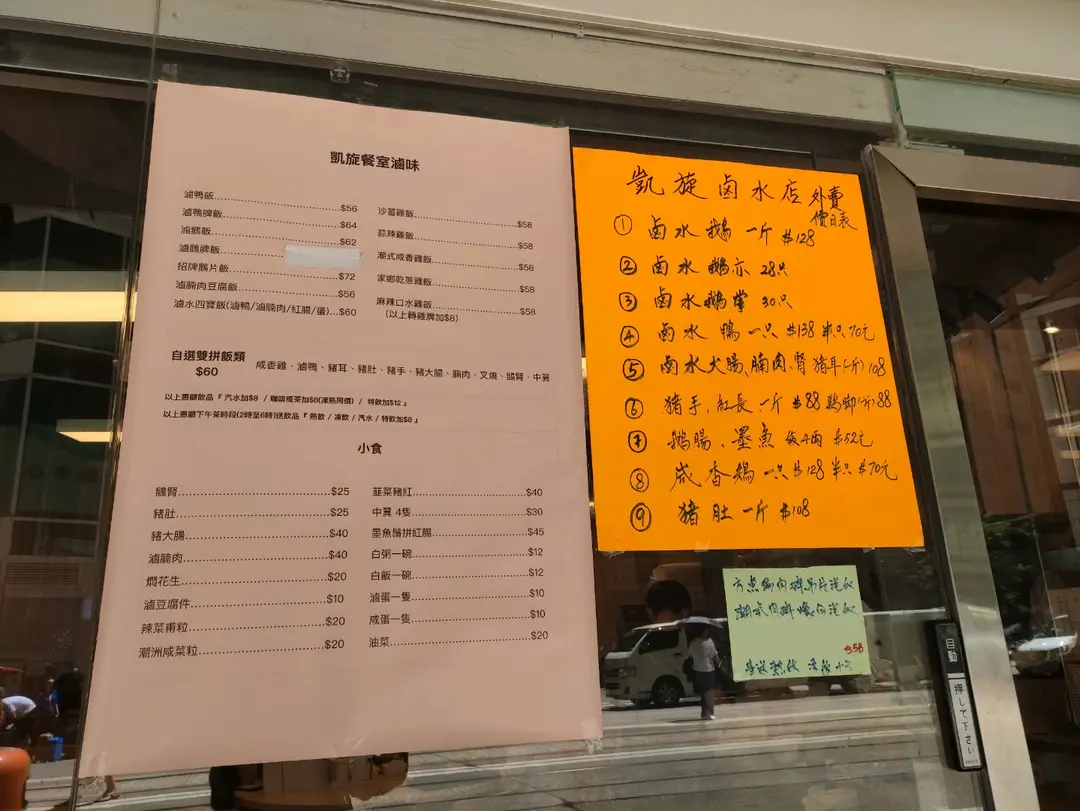 凱旋餐室滷味
滷鴨飯 $56
滷鴨脾飯 $64
滷鵝飯 $62
滷鵝脾飯
招牌鵝片飯 $72
滷腩肉豆腐飯 $56
滷水四寶飯(滷鴨/滷腩肉/紅腸/蛋) $60
沙薑雞飯 $58
蒜辣雞飯 $58
潮式咸香雞飯 $58
家鄉乾蔥雞飯 $58
麻辣口水雞飯 $58
(以上轉雞脾加$8)
自選雙拼飯類
$60
咸香雞、滷鴨、豬耳、豬肚、豬手、豬大腸、腩肉、叉燒、鵝腎、中翼
以上惠顧飲品『 汽水加$8 / 咖啡或茶加$8(凍熱同價) / 特飲加$12 』
以上惠顧下午茶時段(2時至6時)送飲品『 熱飲 / 凍飲 / 汽水 / 特飲加$8 』
小食
鵝腎 $25
豬肚 $25
豬大腸 $40
滷腩肉 $40
燜花生 $20
滷豆腐件 $10
辣菜甫粒 $20
潮洲咸菜粒 $20
韮菜豬紅 $40
中翼 4隻 $30
墨魚鬚拼紅腸 $45
白粥一碗 $12
白飯一碗 $12
滷蛋一隻 $10
咸蛋一隻 $10
油菜 $20
凱旋鹵水店 外賣
價目表
① 鹵水鵝 一斤 $128
② 鹵水鵝亦 28只
③ 鹵水鵝掌 30只
④ 鹵水鴨 一只 $138 半只 70元
⑤ 鹵水大腸、腩肉、腎 猪耳(一斤) 108
⑥ 猪手、紅長 一斤 $88 鷄脚(斤) 88
⑦ 鵝腸、墨魚 4兩 $52元
⑧ 咸香鷄 一只 $128 半只 $70元
⑨ 猪肚 一斤 $108
$58
自動
押して下さい